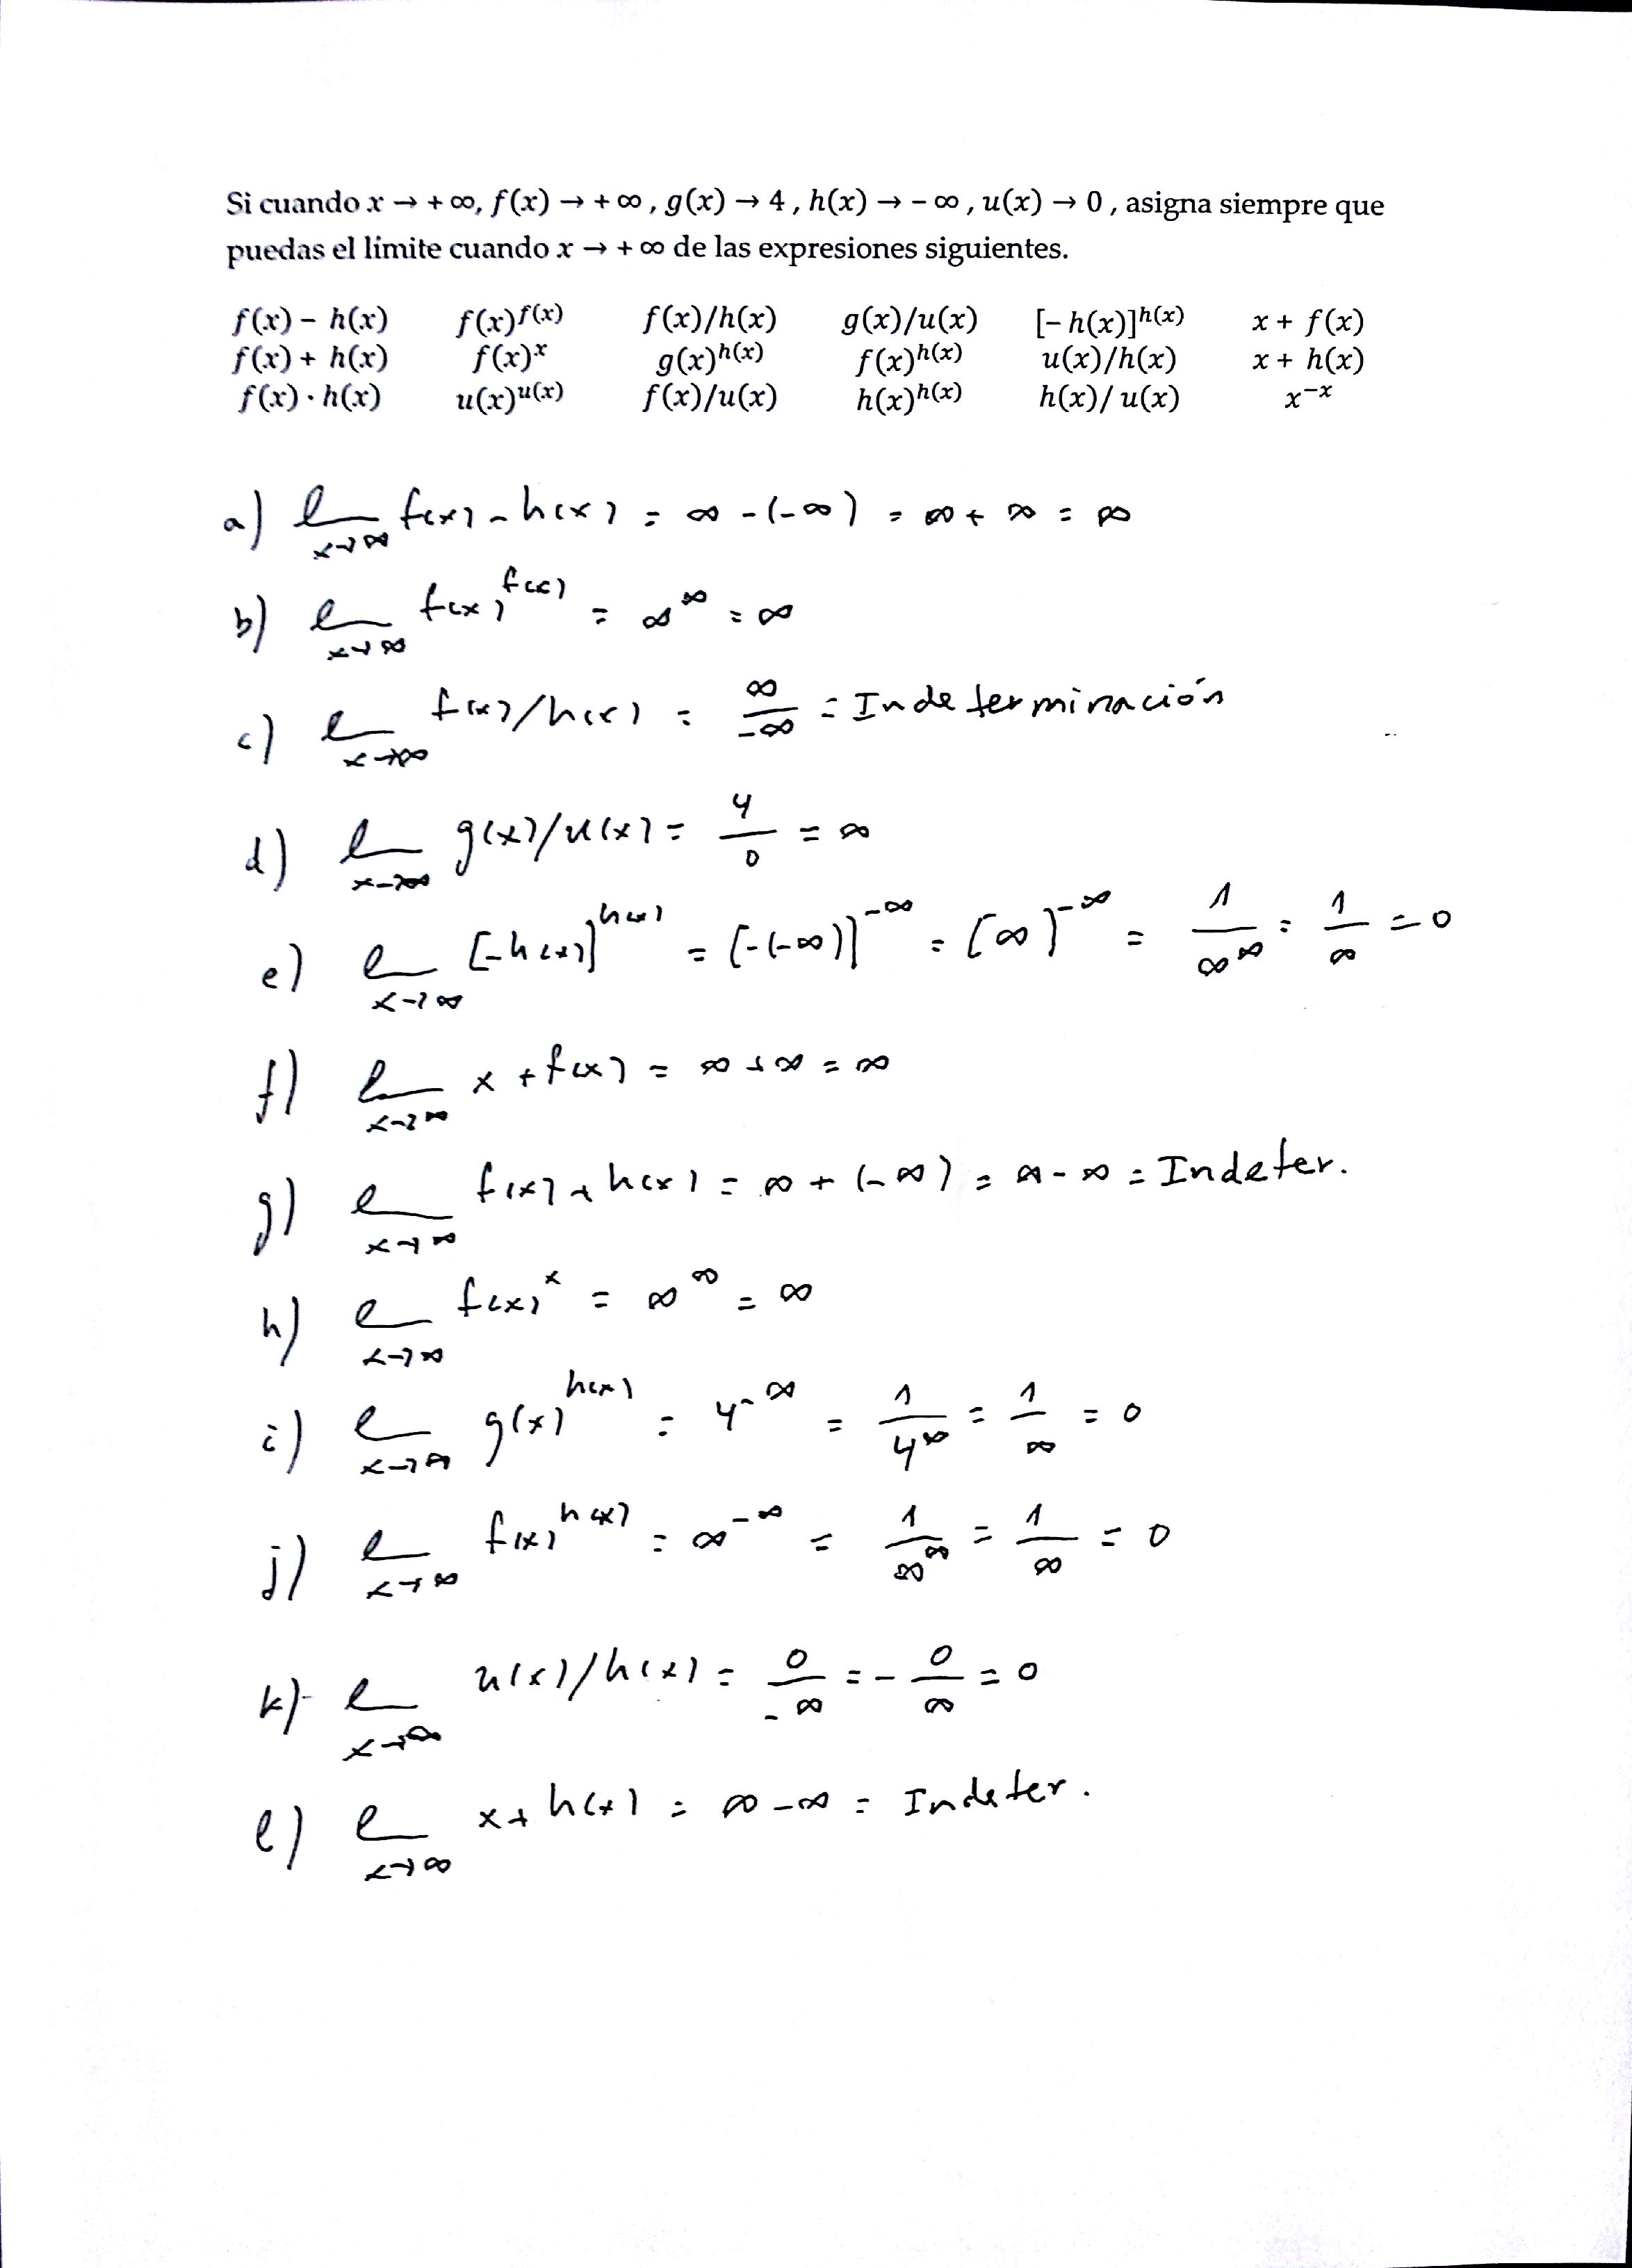 Si cuando x → + ∞, f(x) → + ∞ , g(x) → 4 , h(x) → − ∞ , u(x) → 0 , asigna siempre que
puedas el límite cuando x → + ∞ de las expresiones siguientes.
f(x) − h(x) f(x)^f(x) f(x)/h(x) g(x)/u(x) [− h(x)]^h(x) x + f(x)
f(x) + h(x) f(x)^x g(x)^h(x) f(x)^h(x) u(x)/h(x) x + h(x)
f(x) · h(x) u(x)^u(x) f(x)/u(x) h(x)^h(x) h(x)/ u(x) x^−x
a) lim x→∞ f(x) − h(x) = ∞ − (−∞) = ∞ + ∞ = ∞
b) lim x→∞ f(x)^f(x) = ∞^∞ = ∞
c) lim x→∞ f(x)/h(x) = ∞/−∞ = Indeterminación
d) lim x→∞ g(x)/u(x) = 4/0 = ∞
e) lim x→∞ [−h(x)]^h(x) = [−(−∞)]^−∞ = [∞]^−∞ = 1/∞^∞ = 1/∞ = 0
f) lim x→∞ x + f(x) = ∞ + ∞ = ∞
g) lim x→∞ f(x) + h(x) = ∞ + (−∞) = ∞ − ∞ = Indeter.
h) lim x→∞ f(x)^x = ∞^∞ = ∞
i) lim x→∞ g(x)^h(x) = 4^−∞ = 1/4^∞ = 1/∞ = 0
j) lim x→∞ f(x)^h(x) = ∞^−∞ = 1/∞^∞ = 1/∞ = 0
k) lim x→∞ u(x)/h(x) = 0/−∞ = − 0/∞ = 0
l) lim x→∞ x + h(x) = ∞ − ∞ = Indeter.